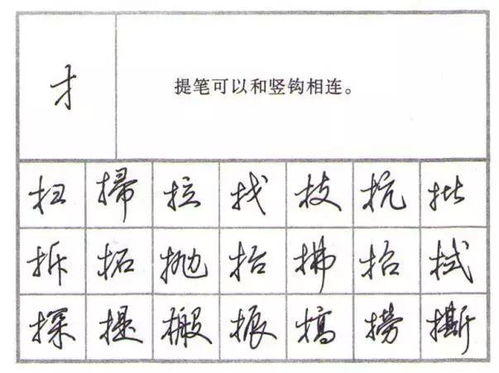 扌
提笔可以和竖钩相连。
扫 掃 拉 找 技 抗 批
拆 拓 抛 抬 拂 招 拭
探 提 搬 振 搞 捞 撕